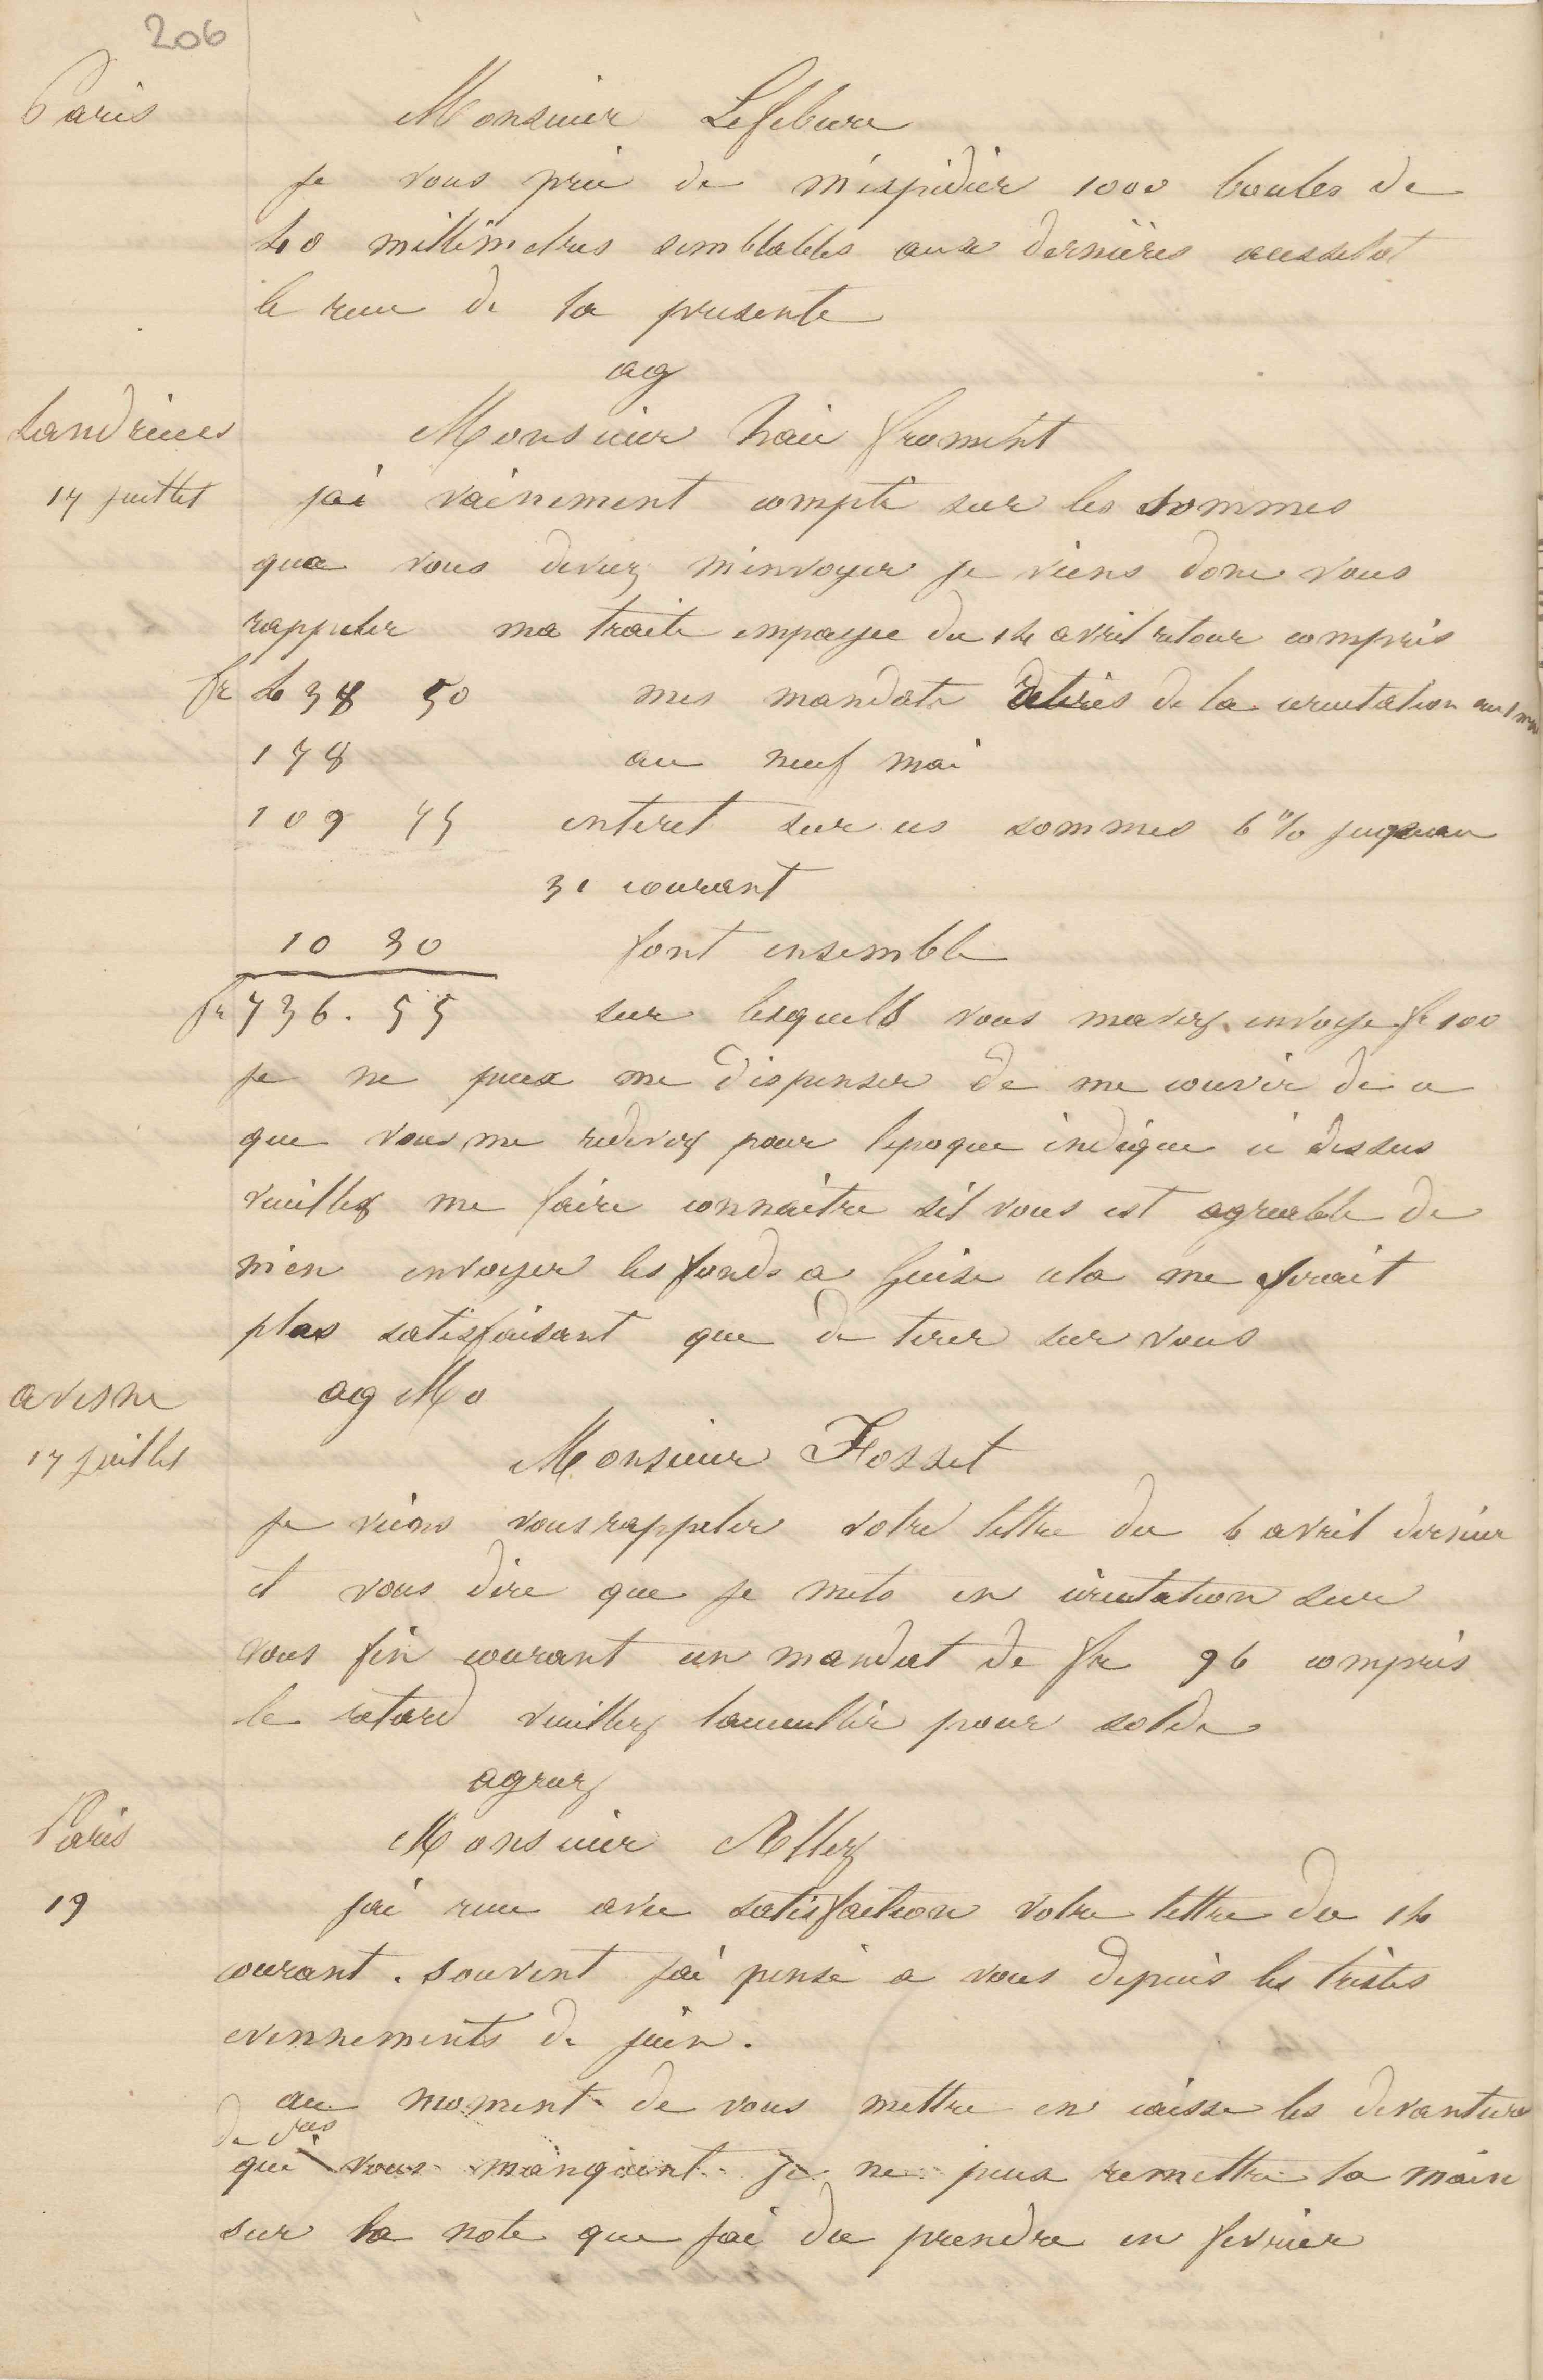 206
Paris
Monsieur Lefebvre
je vous prie de m'expédier 1000 boules de
40 millimetres semblables aux dernières aussitot
le recu de la presente
ag
Landrecies
Monsieur Froment
17 juillet
jai vainement compté sur les sommes
que vous deviez m'envoyer je viens donc vous
rappeler ma traite impayee du 14 avril retour compris
fr 438 50 mes mandats retirés de la circulation au
178 au neuf mai
109 75 interet sur ces sommes 6 % jusquau
31 courant
10 30 font ensemble
fr 736.55 sur lesquells vous mavez envoye fr 100
je ne peux me dispenser de me couvrir de ce
que vous me redevez pour lepoque indiquee ci dessus
veuillez me faire connaitre sil vous est agreable de
m'en envoyer les fonds a Guise cela me serait
plus satisfaisant que de tirer sur vous
avesne
ag Mo
17 juillet
Monsieur Fosset
je viens vous rappeler votre lettre du 6 avril dernier
et vous dire que je mets en circulation sur
vous fin courant un mandat de fr 96 compris
le retard veuillez laccueillir pour solde
agreez
Paris
Monsieur Allez
19
jai recu avec satisfaction votre lettre du 14
courant. souvent jai pensé a vous depuis les tristes
evennements de juin.
au moment de vous mettre en caisse les devantures
de vos
qui vous manquent je ne peux remettre la main
sur la note que jai du prendre en fevrier